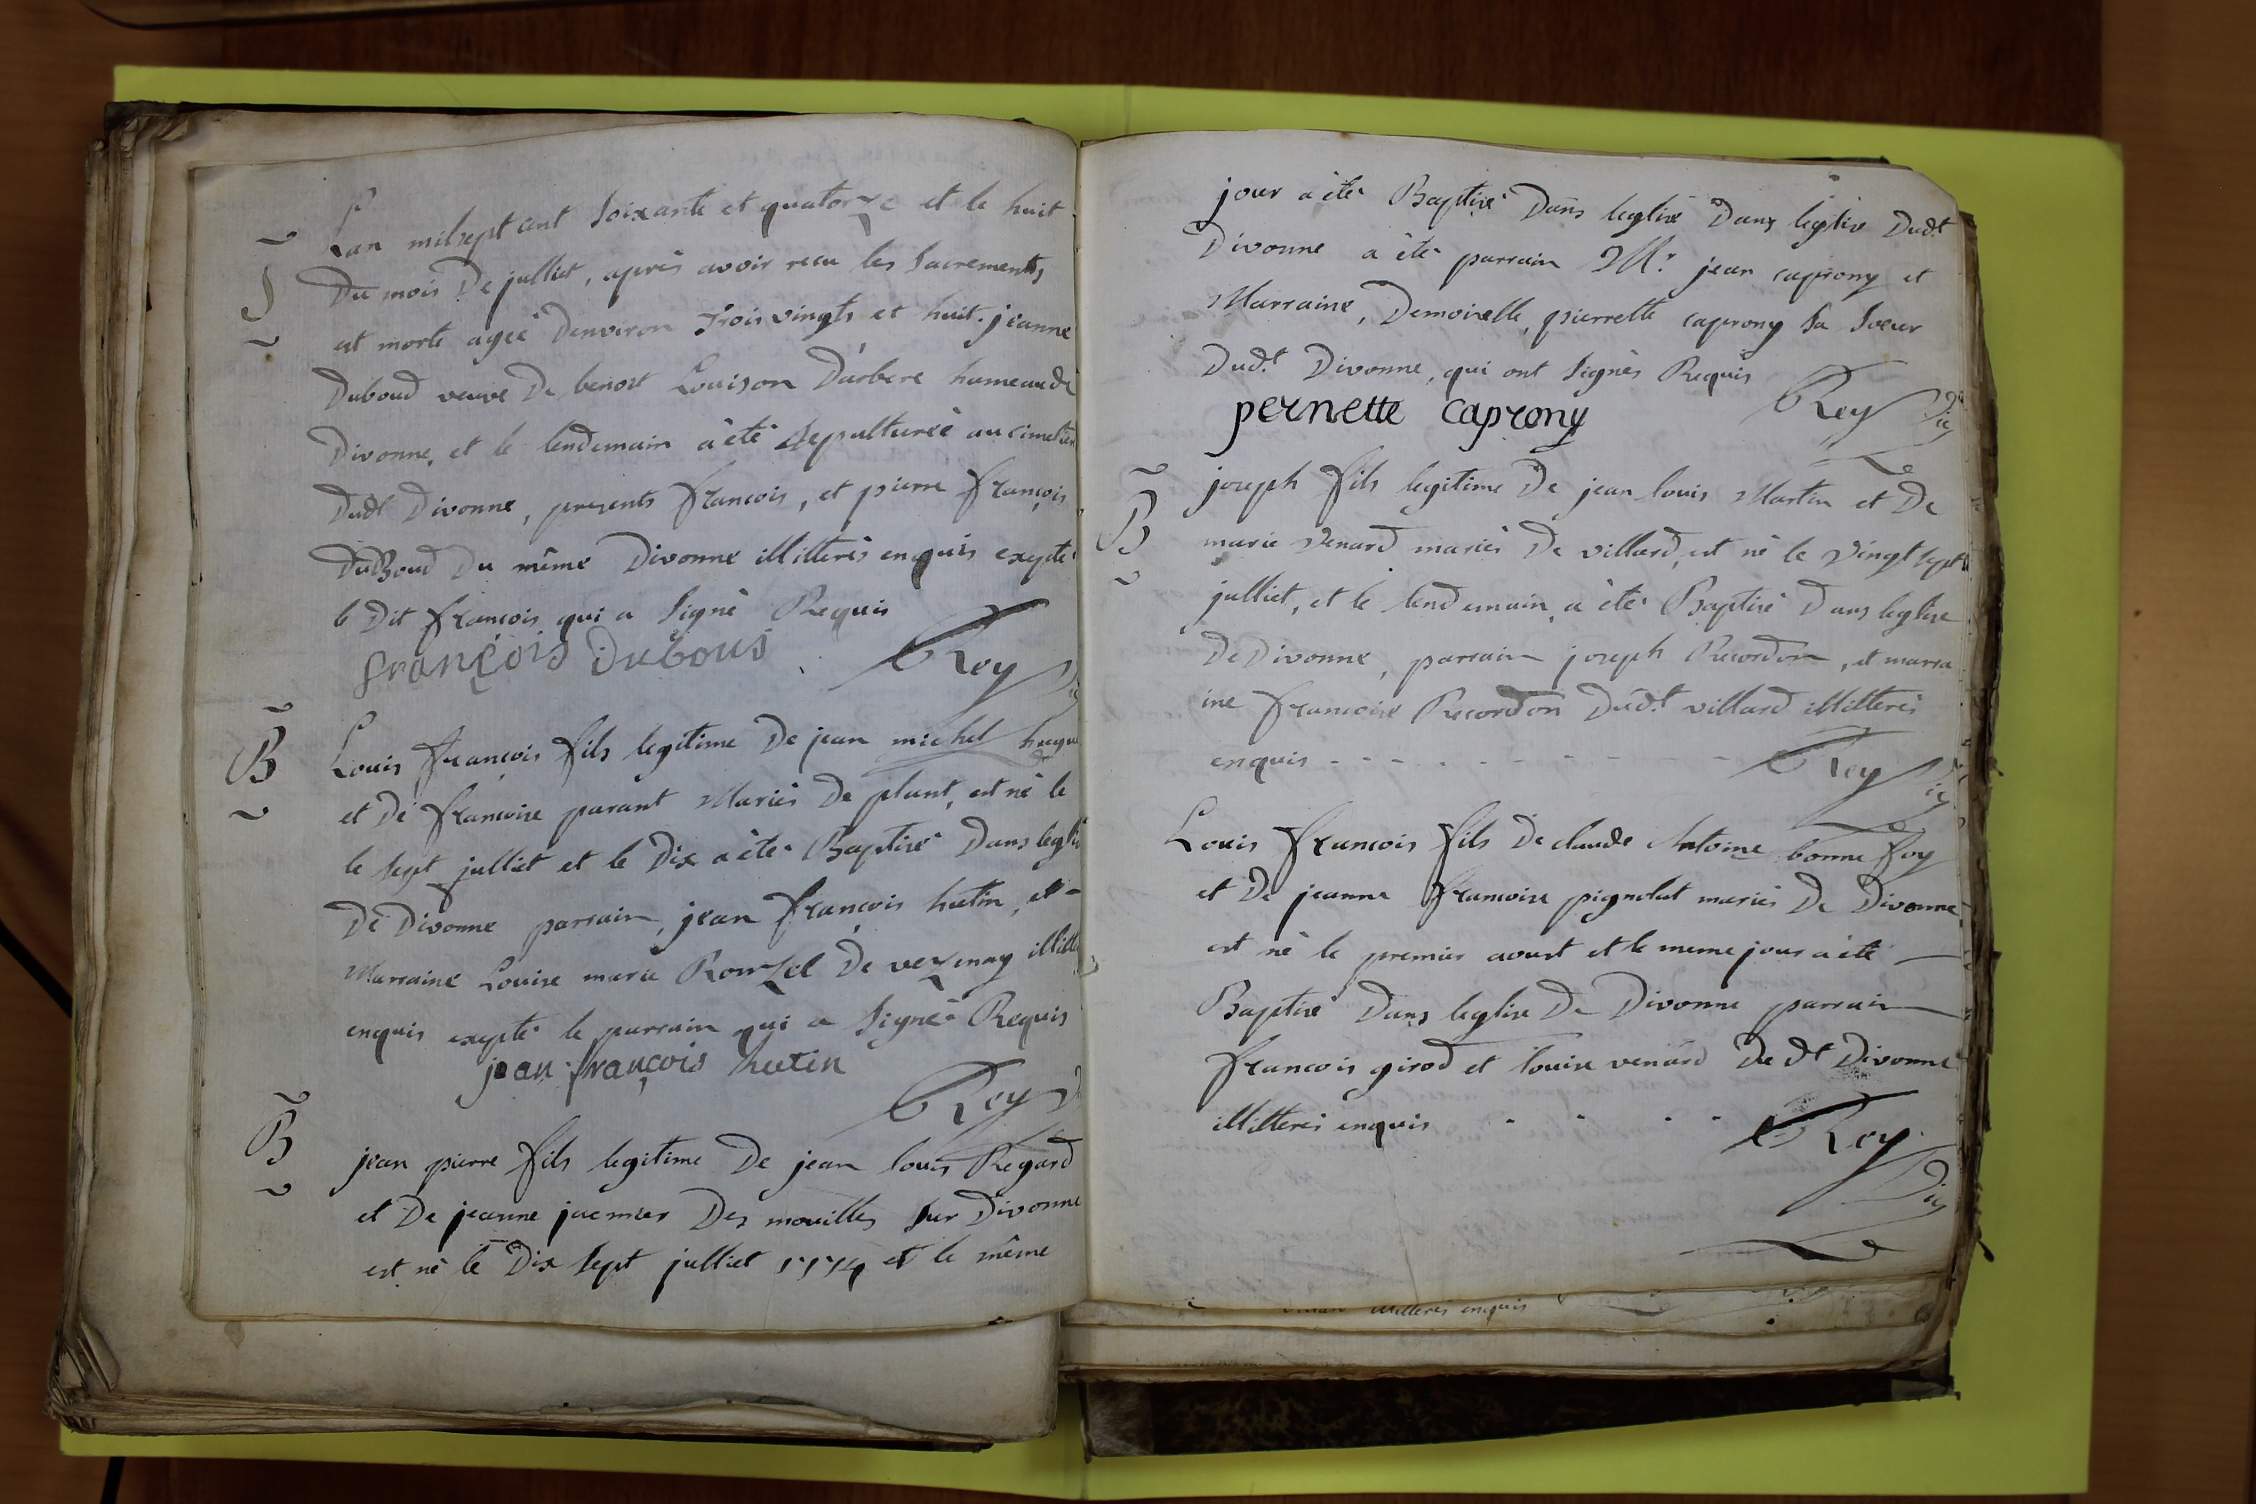 Lan milsept cent soixante et quatorze et le huit
S
Du mois De julliet, après avoir recu les sacrements
est morte agée Denviron trois vingts et huit. jeanne
Duboud veuve De benoit Louison Darbere hameau de
Divonne, et le lendemain a été sepulturée au cimetier
Dudt Divonne, presents francois, et pierre françois
DuBoud Du même Divonne illitterés enquis exepté
le Dit francois qui a signé Requis
françois Dubous
Rey
B
Louis françois fils legitime De jean michel
et De francoise parant Mariés De plant, est né le
le sept julliet et le Dix a été Baptisé Dans leglise
De Divonne parrain, jean françois hutin, et
Marraine Louise marie Rouzet De vezenay illitte
enquis exepté le parrain qui a signé Requis
jean françois hutin
Rey
B
jean pierre fils legitime De jean louis Regard
et De jeanne juemier Des mouilles sur Divonne
est né le Dix sept julliet 1774 et le même
jour a été Baptisé Dans leglise Dans leglise Dudt
Divonne a été parrain Mr jean caprony et
Marraine, Demoiselle, pierrette caprony sa soeur
Dudt Divonne, qui ont signés Requis
pernette caprony
Rey
B
joseph fils legitime De jean louis Martin et De
marie venard mariés De villard, est né le vingt sept
julliet, et le lendemain a été Baptisé Dans leglise
De Divonne, parrain joseph Recordon, et marra
ine francoise Recordon Dudt villard illitterés
enquis
Rey
Louis francois fils De claude Antoine bonne foy
et De jeanne francoise pignolat mariés De Divonne
est né le premier aoust et le meme jour a été
Baptisé Dans leglise De Divonne parrain
francois girod et louise venard De dt Divonne
illitterés enquis
Rey
illitterés enquis